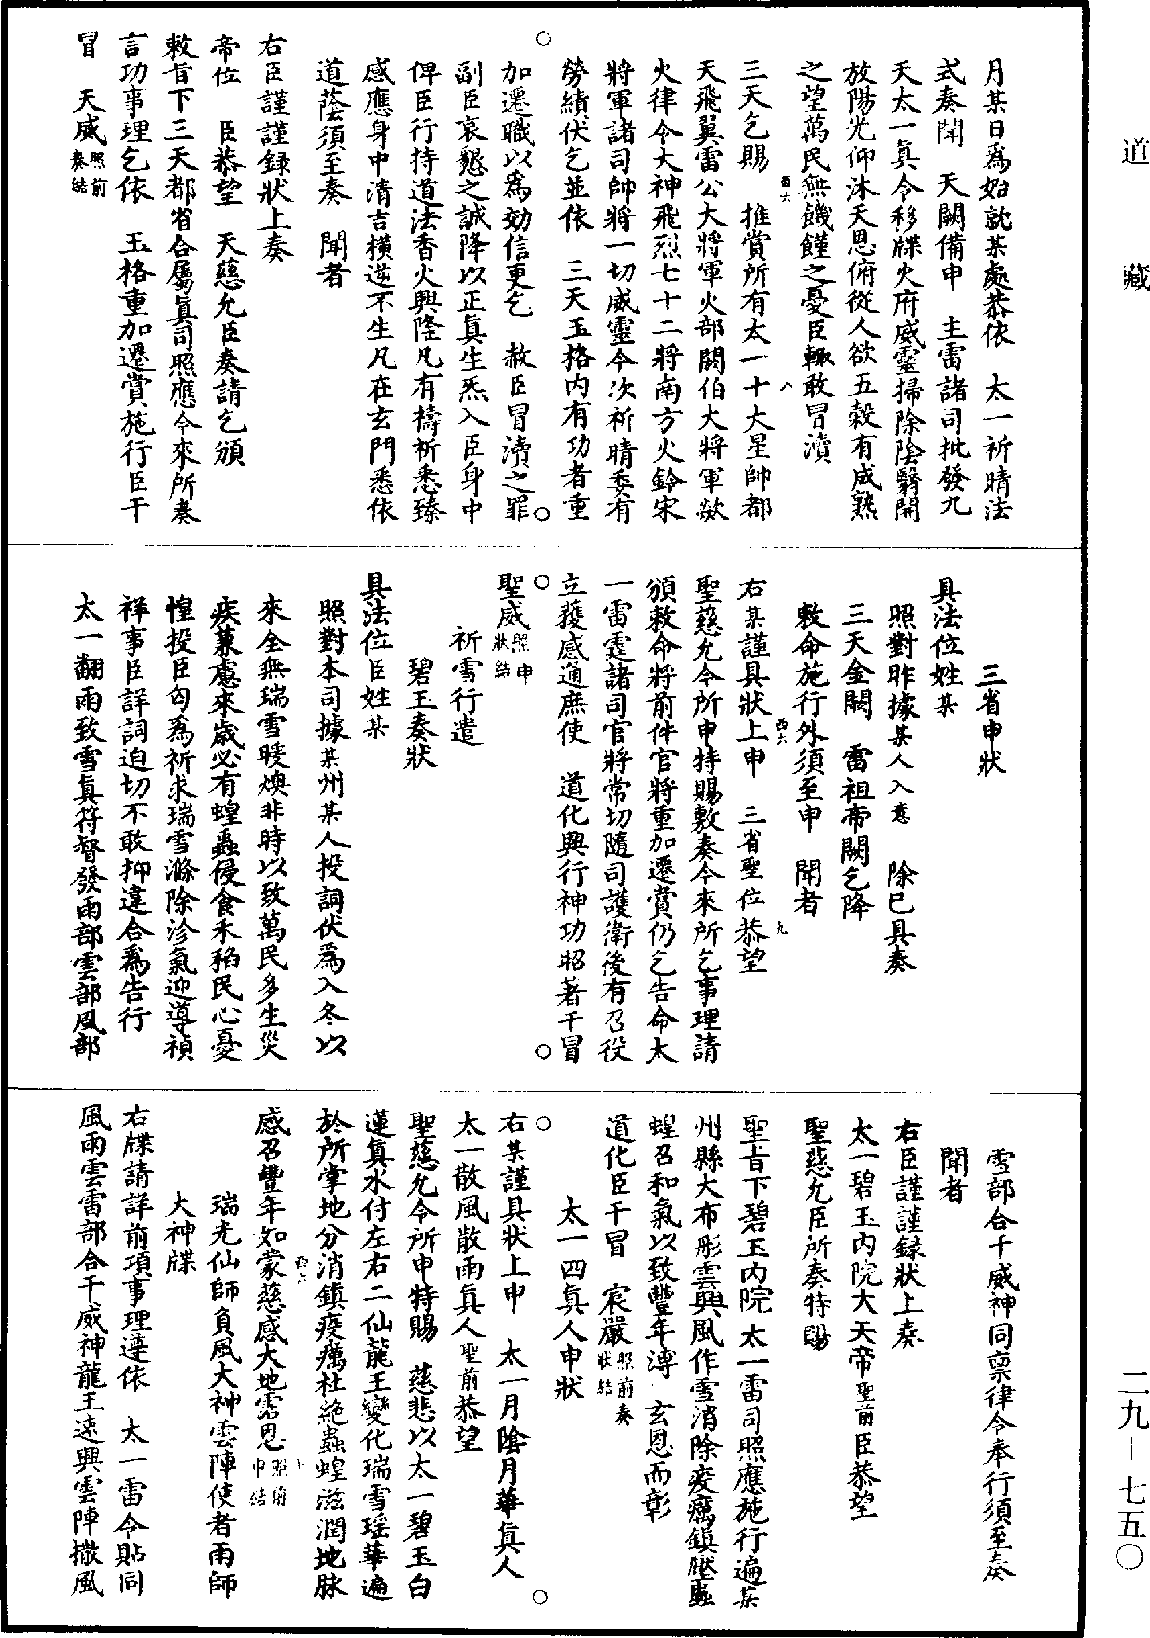 道藏
二九—七五〇
月某日爲始就某處恭依　太一祈晴法
式奏聞　天闕備申　主雷諸司批發九
天太一真令移牒火府威靈掃除陰翳開
放陽光仰沐天恩俯從人欲五穀有成熟
之望萬民無饑饉之憂臣輙敢冒瀆
三天乞賜　推賞所有太一十大星帥都
天飛翼雷公大將軍火部閼伯大將軍歘
火律令大神飛烈七十二將南方火鈴宋
將軍諸司帥將一切威靈今次祈晴委有
勞績伏乞並依　三天玉格內有功者重
加遷職以爲効信更乞　赦臣冒瀆之罪
副臣哀懇之誠降以正真生炁入臣身中
俾臣行持道法香火興隆凡有禱祈悉臻
感應身中清吉橫逆不生凡在玄門悉依
道蔭須至奏　聞者
右臣謹謹録狀上奏
帝位　臣恭望　天慈允臣奏請乞頒
敕旨下三天都省合屬真司照應今來所奏
言功事理乞依　玉格重加遷賞施行臣干
冒　天威照前奏結
三省申狀
具法位姓某
照對昨據某人入意　除已具奏
三天金闕　雷祖帝闕乞降
敕命施行外須至申　聞者
右某謹具狀上申　三省聖位恭望
聖慈允今所申特賜敷奏今來所乞事理請
頒敕命將前件官將重加遷賞仍乞告命太
一雷霆諸司官將常切隨司護衛後有召役
立獲感通庶使　道化興行神功昭著干冒
聖威照申狀結
祈雪行遣
碧玉奏狀
具法位臣姓某
照對本司據某州某人投詞伏爲入冬以
來全無瑞雪暖燠非時以致萬民多生災
疾兼慮來歲必有蝗蟲侵食禾稻民心憂
惶投臣匄爲祈求瑞雪滌除沴氣迎導禎
祥事臣詳詞迫切不敢抑違合爲告行
太一翻雨致雪真符督發雨部雲部風部
雪部合千威神同稟律令奉行須至奏
聞者
右臣謹謹録狀上奏
太一碧玉內院大天帝聖前臣恭望
聖慈允臣所奏特賜
聖旨下碧玉內院　太一雷司照應施行遍某
州縣大布彤雲興風作雪消除疫癘鎮壓蟲
蝗召和氣以致豐年溥　玄恩而彰
道化臣干冒　宸嚴照前奏狀結
太一四真人申狀
右某謹具狀上申　太一月陰月華真人
太一散風散雨真人聖前恭望
聖慈允今所申特賜　慈悲以太一碧玉白
蓮真水付左右二仙龍王變化瑞雪瑶華遍
於所掌地分消鎮疫癘杜絶蟲蝗滋潤地脉
感召豐年如蒙慈感大地霑恩照前申結
瑞光仙師負風大神雲陣使者雨師
大神牒
右牒請詳前項事理遵依　太一雷令貼同
風雨雲雷部合千威神龍王速興雲陣撒風